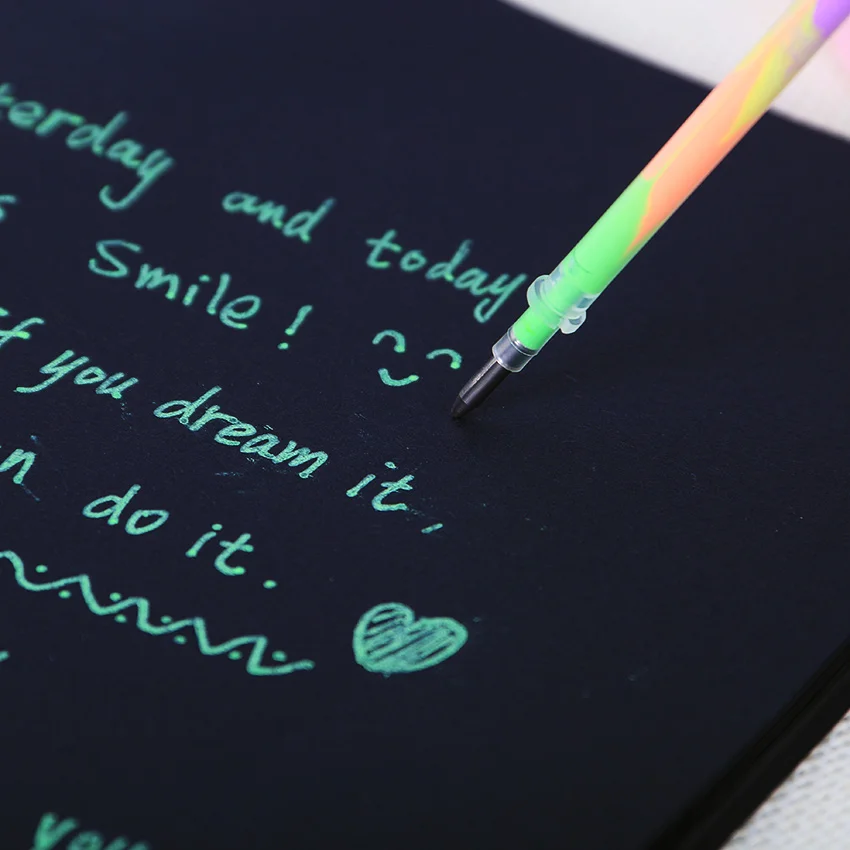 terday and today
s Smile!
If you dream it,
n do it.
you